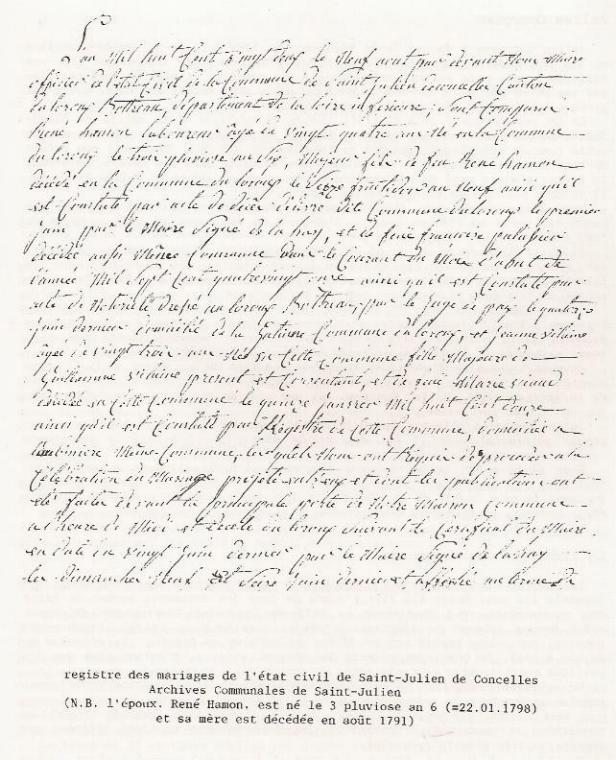 L'an Mil huit Cent vingt deux le Neuf aout par devant Nous Maire
officier de l'etat Civil de la Commune de Saint Julien de concelles Canton
du loroux Bottreau, département de la loire inférieure, Sont Comparus
René hamon laboureur agé de vingt quatre ans Né en la Commune
du loroux le trois pluviose an Six, Majeur fils de feu René hamon
décédé en la Commune du loroux le Seize fructidor an Neuf ainsi qu'il
est Constaté par acte de décès délivré dite Commune du loroux le premier
juin par le Maire Signé de la haye, et de feüe francoise
décédée aussi Même Commune dans le Courant du Mois d'aout de
l'année Mil Sept Cent quatrevingt onze ainsi qu'il est Constaté par
acte de Notoriété dressé au loroux Bottreau, par le juge de paix le quatre
juin dernier domicilié de la Commune du loroux, et jeanne vilaine
agée de vingt trois ans Née en Cette Commune fille Majeure de
Guillaume vilaine present et Consentant, et de feüe Marie viaud
décédée en Cette Commune le quinze janvier Mil huit Cent douze
ainsi qu'il est Constaté par le Registre de Cette Commune, domiciliée a
Même Commune, lesquels Nous ont Requis de proceder a la
Célébration du Mariage projeté entreux et dont les publications ont
eté faites devant la principale porte de Notre Maison Commune
a l'heure de Midi et Celle du loroux Suivant le Certificat du Maire
en date du vingt juin dernier par le Maire Signé de la haye
les dimanches Neuf et Seize juin dernier et affiché au terme de
registre des mariages de l'état civil de Saint-Julien de Concelles
Archives Communales de Saint-Julien
(N.B. l'époux. René Hamon. est né le 3 pluviose an 6 (=22.01.1798)
et sa mère est décédée en août 1791)